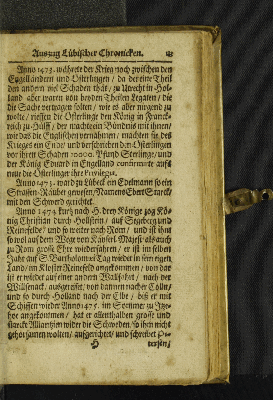 Auszug Lübischer Chronicken.
Anno 1473. währete der Krieg noch zwischen den
Engelländern und Osterlingen / da der eine Theil
den andern viel Schaden thät / zu Utrecht in Hol-
land aber waren von beyden Theilen Legaten / die
die Sache vertragen solten / wie es aber nirgend zu
wolte / rieffen die Osterlinge den König in Franck-
reich zu Hülff / der machte ein Bündnis mit ihnen /
wie das die Engelschen vernahmen / machten sie des
Krieges ein Ende / und verschrieben den Osterlingen
vor ihren Schaden 10000. Pfund Sterlinge / und
der König Eduard in Engelland confirmirte auffs
neue die Osterlinge ihre Privilegia.
Anno 1473. ward zu Lübeck ein Edelmann so ein
Strassen-Räuber gewesen / Namens Ebert Starck /
mit den Schwerd gerichtet.
Anno 1474. kurtz nach H. drey Könige zog Kö-
nig Christian durch Hollstein / auf Segeberg und
Reinefelde / und so weiter nach Rom / und ist ihm
so wol auf dem Wege von Känserl. Majestät als auch
zu Rom grosse Ehre wiederfahren / er ist im selben
Jahr auf S. Bartholomei Tag wieder in sein eigen
Land / im Kloster Reinefeld angekommen / von dar
ist er wieder auf einer andern Wallfahrt / nach der
Willsenack / ausgereiset / von dannen nacher Cölln /
und so durch Holland nach der Elbe / biß er mit
Schiffen wieder Anno 1475. im Sommer zu
angekommen / hat er allenthalben grosse und
starcke Alliantzien wider die Schweden / so ihm nicht
gehorsamen wolten / aufgerichtet / und schreibet
H